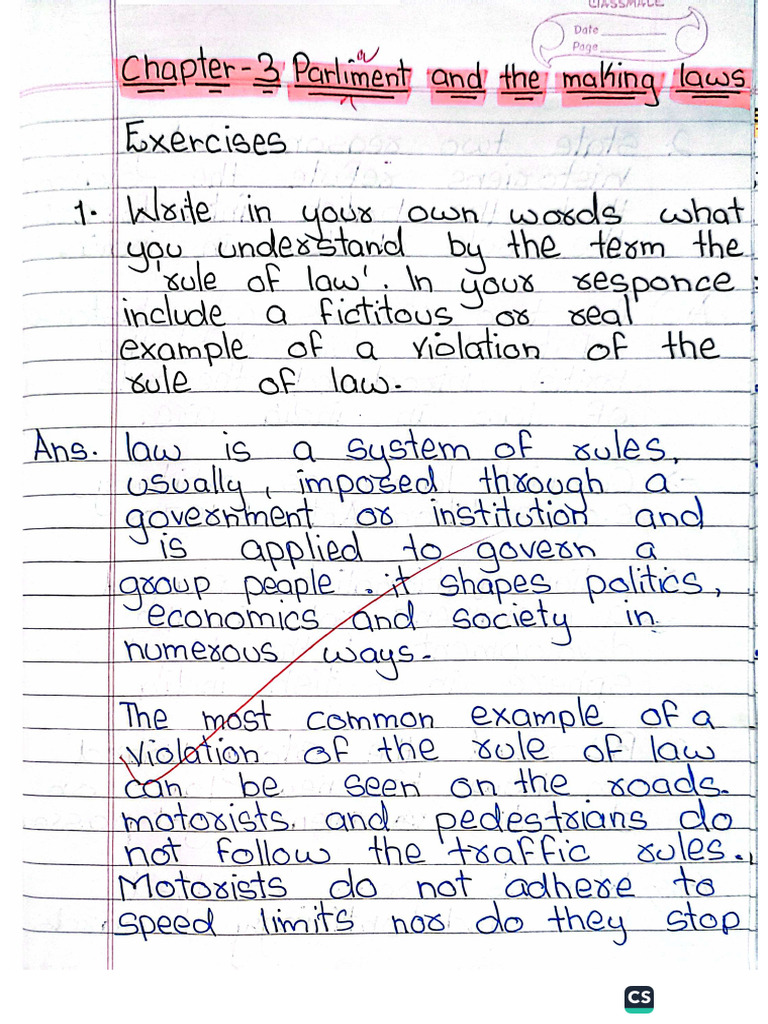 CLASSMATE
Date
Page
a
Chapter-3 Parliment and the making laws
Exercises
1. Write in your own words what
you understand by the term the
'rule of law'. In your responce
include a fictitous or real
example of a violation of the
rule of law.
Ans. law is a system of rules,
usually, imposed through a
government or institution and
is applied to govern a
group peaple. it shapes politics,
economics and society in
numerous ways.
The most common example of a
violation of the rule of law
can be seen on the roads.
motorists and pedestrians do
not follow the traffic rules.
Motorists do not adhere to
speed limits nor do they stop
CS